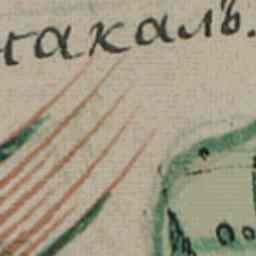 такалъ.